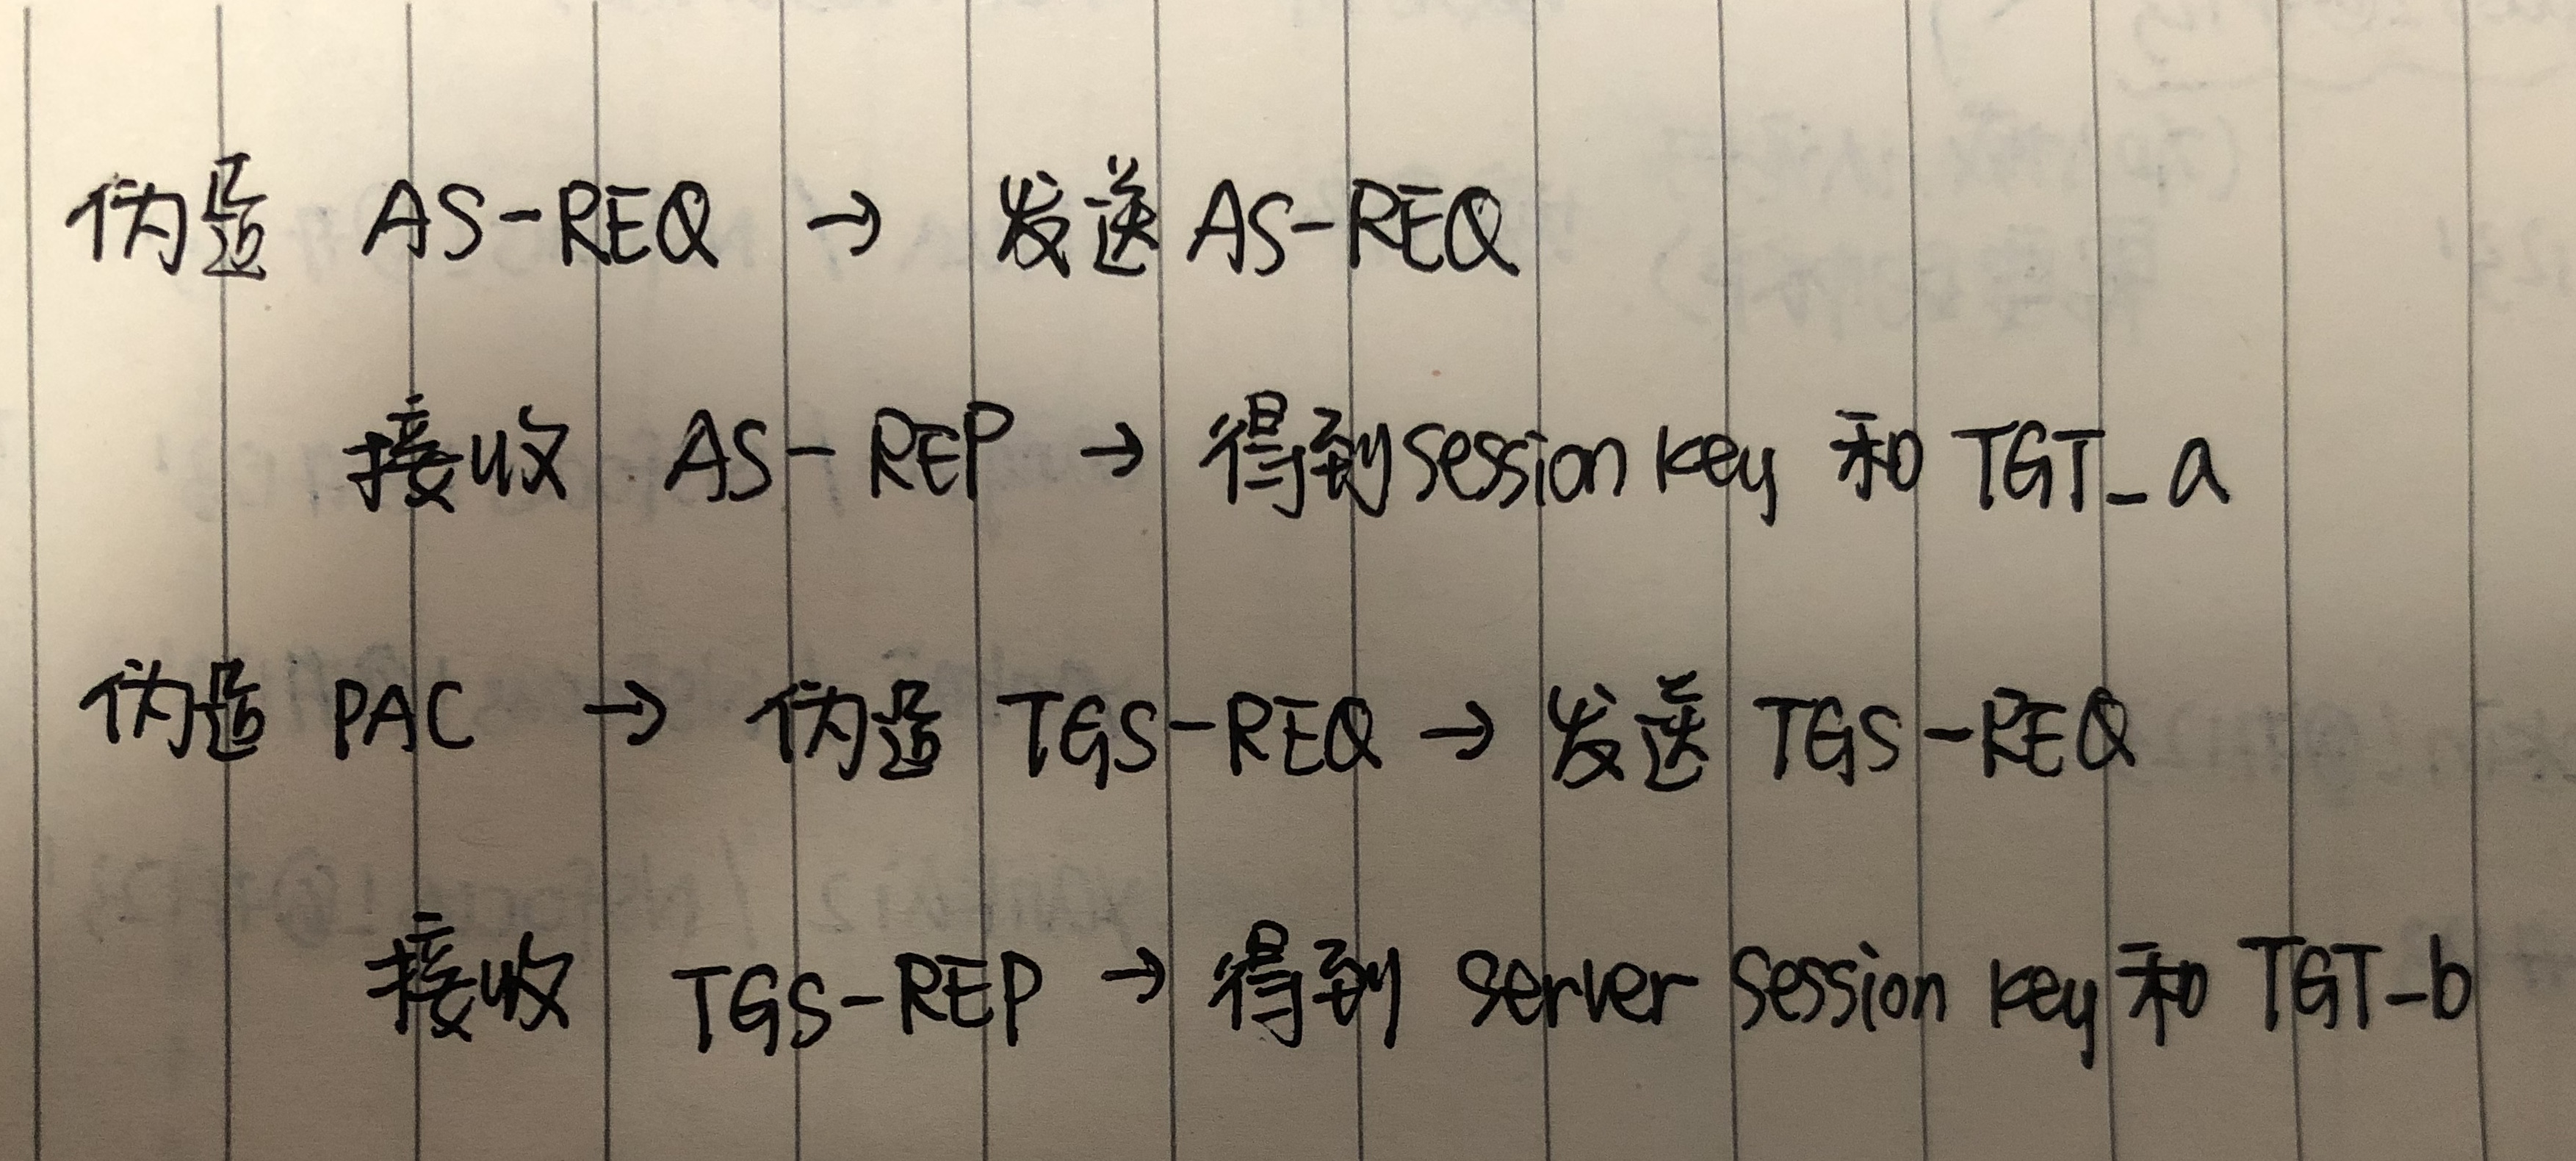 伪造 AS-REQ → 发送 AS-REQ
接收 AS-REP → 得到 session key 和 TGT_a
伪造 PAC → 伪造 TGS-REQ → 发送 TGS-REQ
接收 TGS-REP → 得到 server session key 和 TGT_b